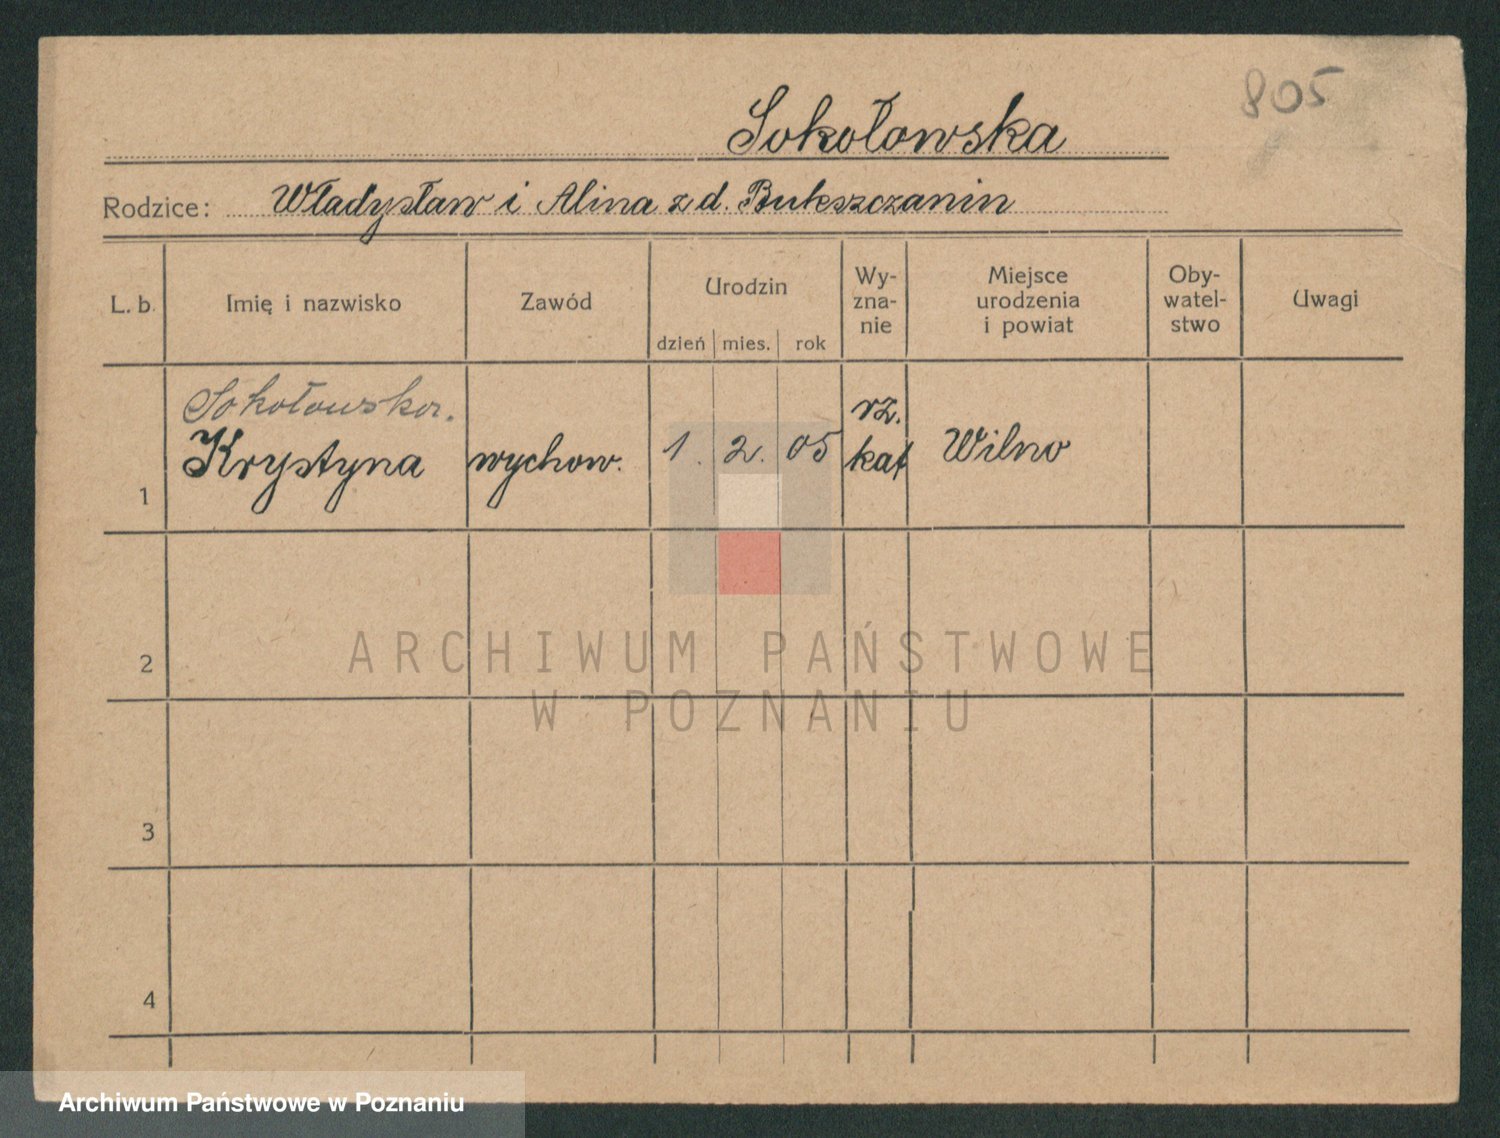 805
Sokołowska
Rodzice: Władysław i Alina z d. Bukszczanin
L. b. Imię i nazwisko Zawód Urodzin dzień mies. rok Wy-
zna-
nie Miejsce
urodzenia
i powiat Oby-
watel-
stwo Uwagi
Sokołowska.
1 Krystyna wychow. 1. 2. 05 rz.
kat Wilno
2
3
4
ARCHIWUM PAŃSTWOWE
W POZNANIU
Archiwum Państwowe w Poznaniu